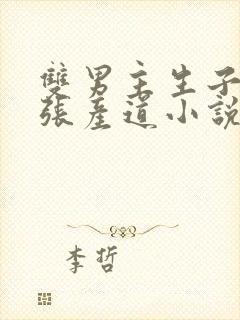 雙男主生子擴
張產道小說
李哲